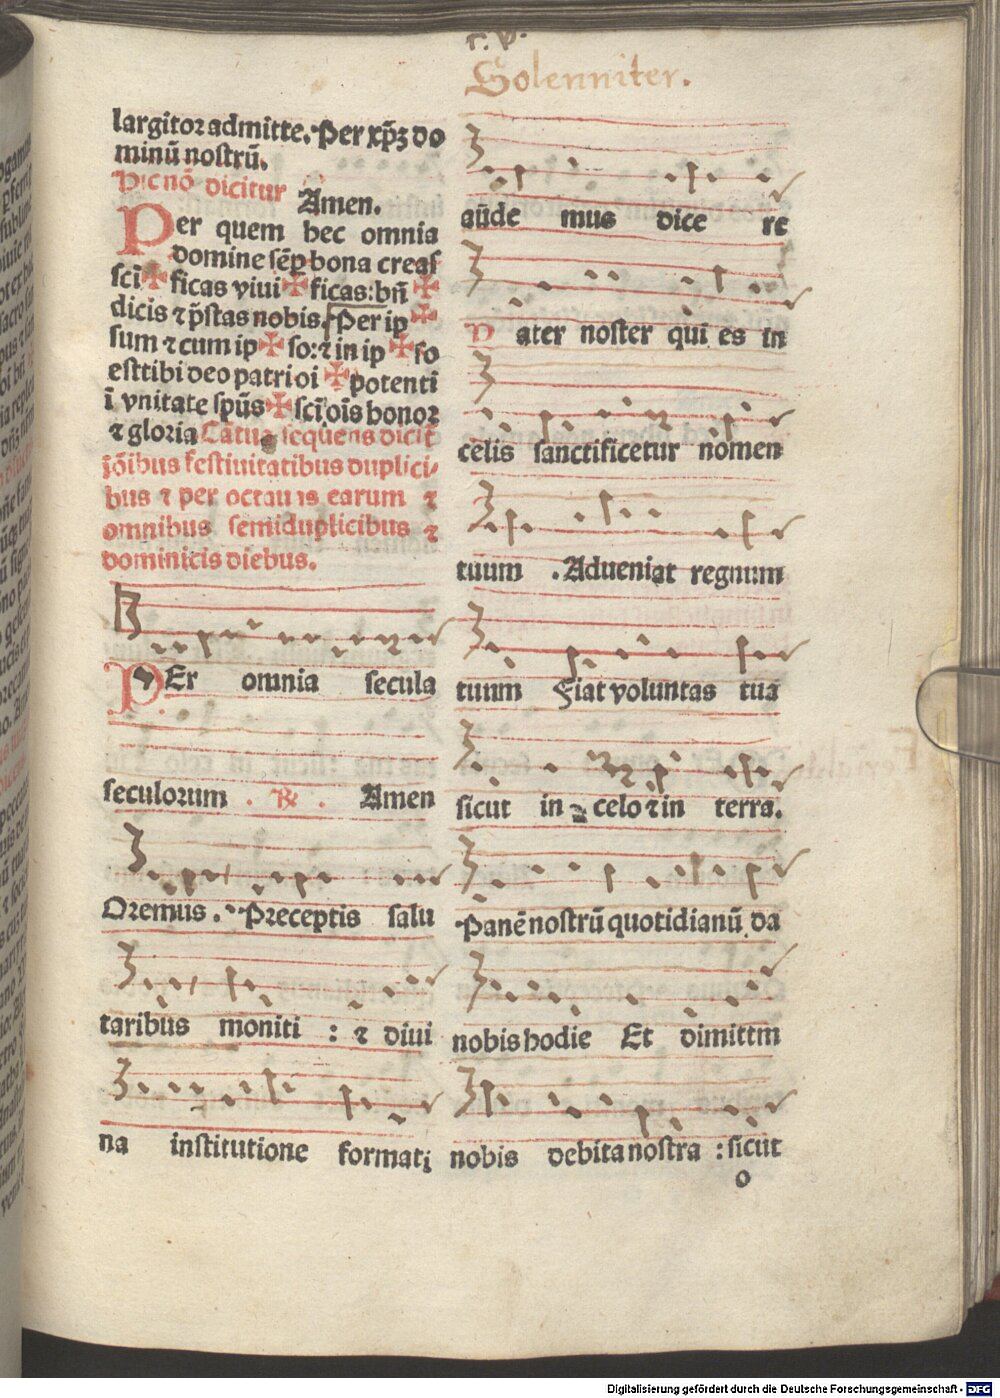 largitor admitte. Per xp̄ꝫ do
minū nostrū.
Hic nō dicitur Amen.
Per quem hec omnia
domine sēp bona creas
sci✠ficas viui✠ficas: bn̄✠
dicis ⁊ p̄stas nobis. Per ip✠
sum ⁊ cum ip✠so: ⁊ in ip✠so
est tibi deo patri oi✠potenti
ī vnitate spūs✠scī oīs honor
⁊ gloria Cātus sequens dicit̄
ī oībus festiuitatibus duplici/
bus ⁊ per octauas earum ⁊
omnibus semiduplicibus ⁊
dominicis diebus.
PEr omnia secula
seculorum . ℟ . Amen
Oremus. Preceptis salu
taribus moniti : ⁊ diui
na institutione formati
Solenniter.
aūde mus dice re
Pater noster qui es in
celis sanctificetur nomen
tuum . Adueniat regnum
tuum Fiat voluntas tua
sicut in celo ⁊ in terra.
Panē nostrū quotidianū da
nobis hodie Et dimitte
nobis debita nostra : sicut
o
Digitalisierung gefördert durch die Deutsche Forschungsgemeinschaft - DFG